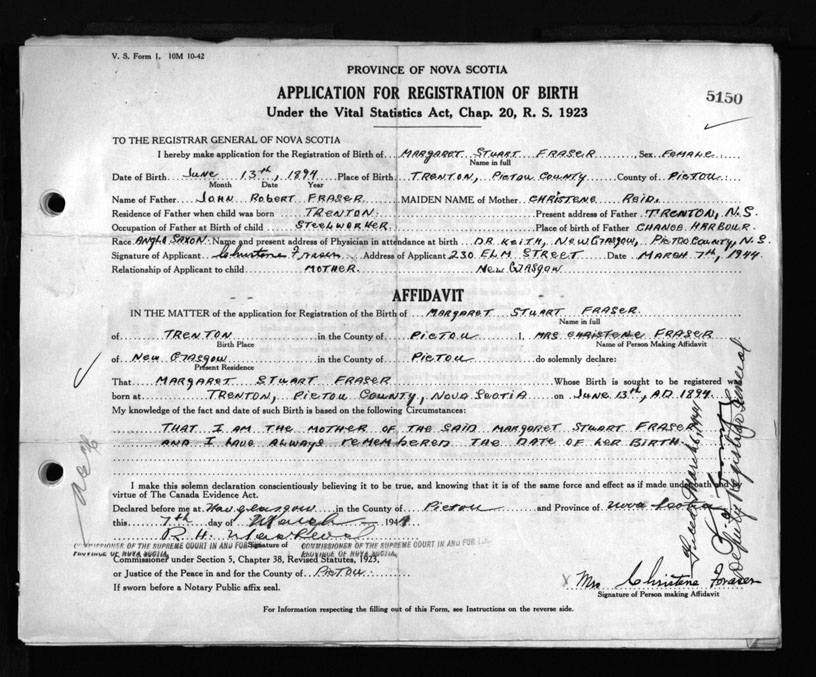 V. S. Form 1. 10M 10-42
PROVINCE OF NOVA SCOTIA
APPLICATION FOR REGISTRATION OF BIRTH
5150
Under the Vital Statistics Act, Chap. 20, R. S. 1923
TO THE REGISTRAR GENERAL OF NOVA SCOTIA
I hereby make application for the Registration of Birth of MARGARET STUART FRASER Sex FEMALE
Name in full
Date of Birth June 13th, 1894 Place of Birth TRENTON, PICTOU COUNTY County of PICTOU
Month Date Year
Name of Father JOHN ROBERT FRASER MAIDEN NAME of Mother CHRISTENE REID.
Residence of Father when child was born TRENTON. Present address of Father TRENTON, N.S.
Occupation of Father at Birth of child STEELWORKER Place of birth of Father CHANCE HARBOUR.
Race ANGLO SAXON. Name and present address of Physician in attendance at birth DR KEITH, NEW GLASGOW, PICTOU COUNTY, N.S.
Signature of Applicant Christene Fraser Address of Applicant 230 ELM STREET Date MARCH 7th, 1944.
Relationship of Applicant to child MOTHER. NEW GLASGOW
AFFIDAVIT
IN THE MATTER of the application for Registration of the Birth of MARGARET STUART FRASER.
Name in full
of TRENTON in the County of PICTOU I, MRS CHRISTENE FRASER
Birth Place Name of Person Making Affidavit
of NEW GLASGOW in the County of PICTOU do solemnly declare:
Present Residence
That MARGARET STUART FRASER Whose Birth is sought to be registered w
born at TRENTON, PICTOU COUNTY, NOVA SCOTIA on JUNE 13th, AD. 1894.
My knowledge of the fact and date of such Birth is based on the following Circumstances:
THAT I AM THE MOTHER OF THE SAID MARGARET STUART FRASER
AND I HAVE ALWAYS REMEMBERED THE DATE OF HER BIRTH.
I make this solemn declaration conscientiously believing it to be true, and knowing that it is of the same force and effect as if made under oath and by
virtue of The Canada Evidence Act.
Declared before me at New Glasgow in the County of Pictou and Province of Nova Scotia
this 7th day of March 1944
R. H.
Signature of
COMMISSIONER OF THE SUPREME COURT IN AND FOR COMMISSIONER OF THE SUPREME COURT IN AND FOR
PROVINCE OF NOVA SCOTIA. PROVINCE OF NOVA SCOTIA.
Commissioner under Section 5, Chapter 38, Revised Statutes, 1923,
or Justice of the Peace in and for the County of PICTOU
If sworn before a Notary Public affix seal.
X Mrs Christene Fraser
Signature of Person making Affidavit
For Information respecting the filling out of this Form, see Instructions on the reverse side.
Deputy Registrar General